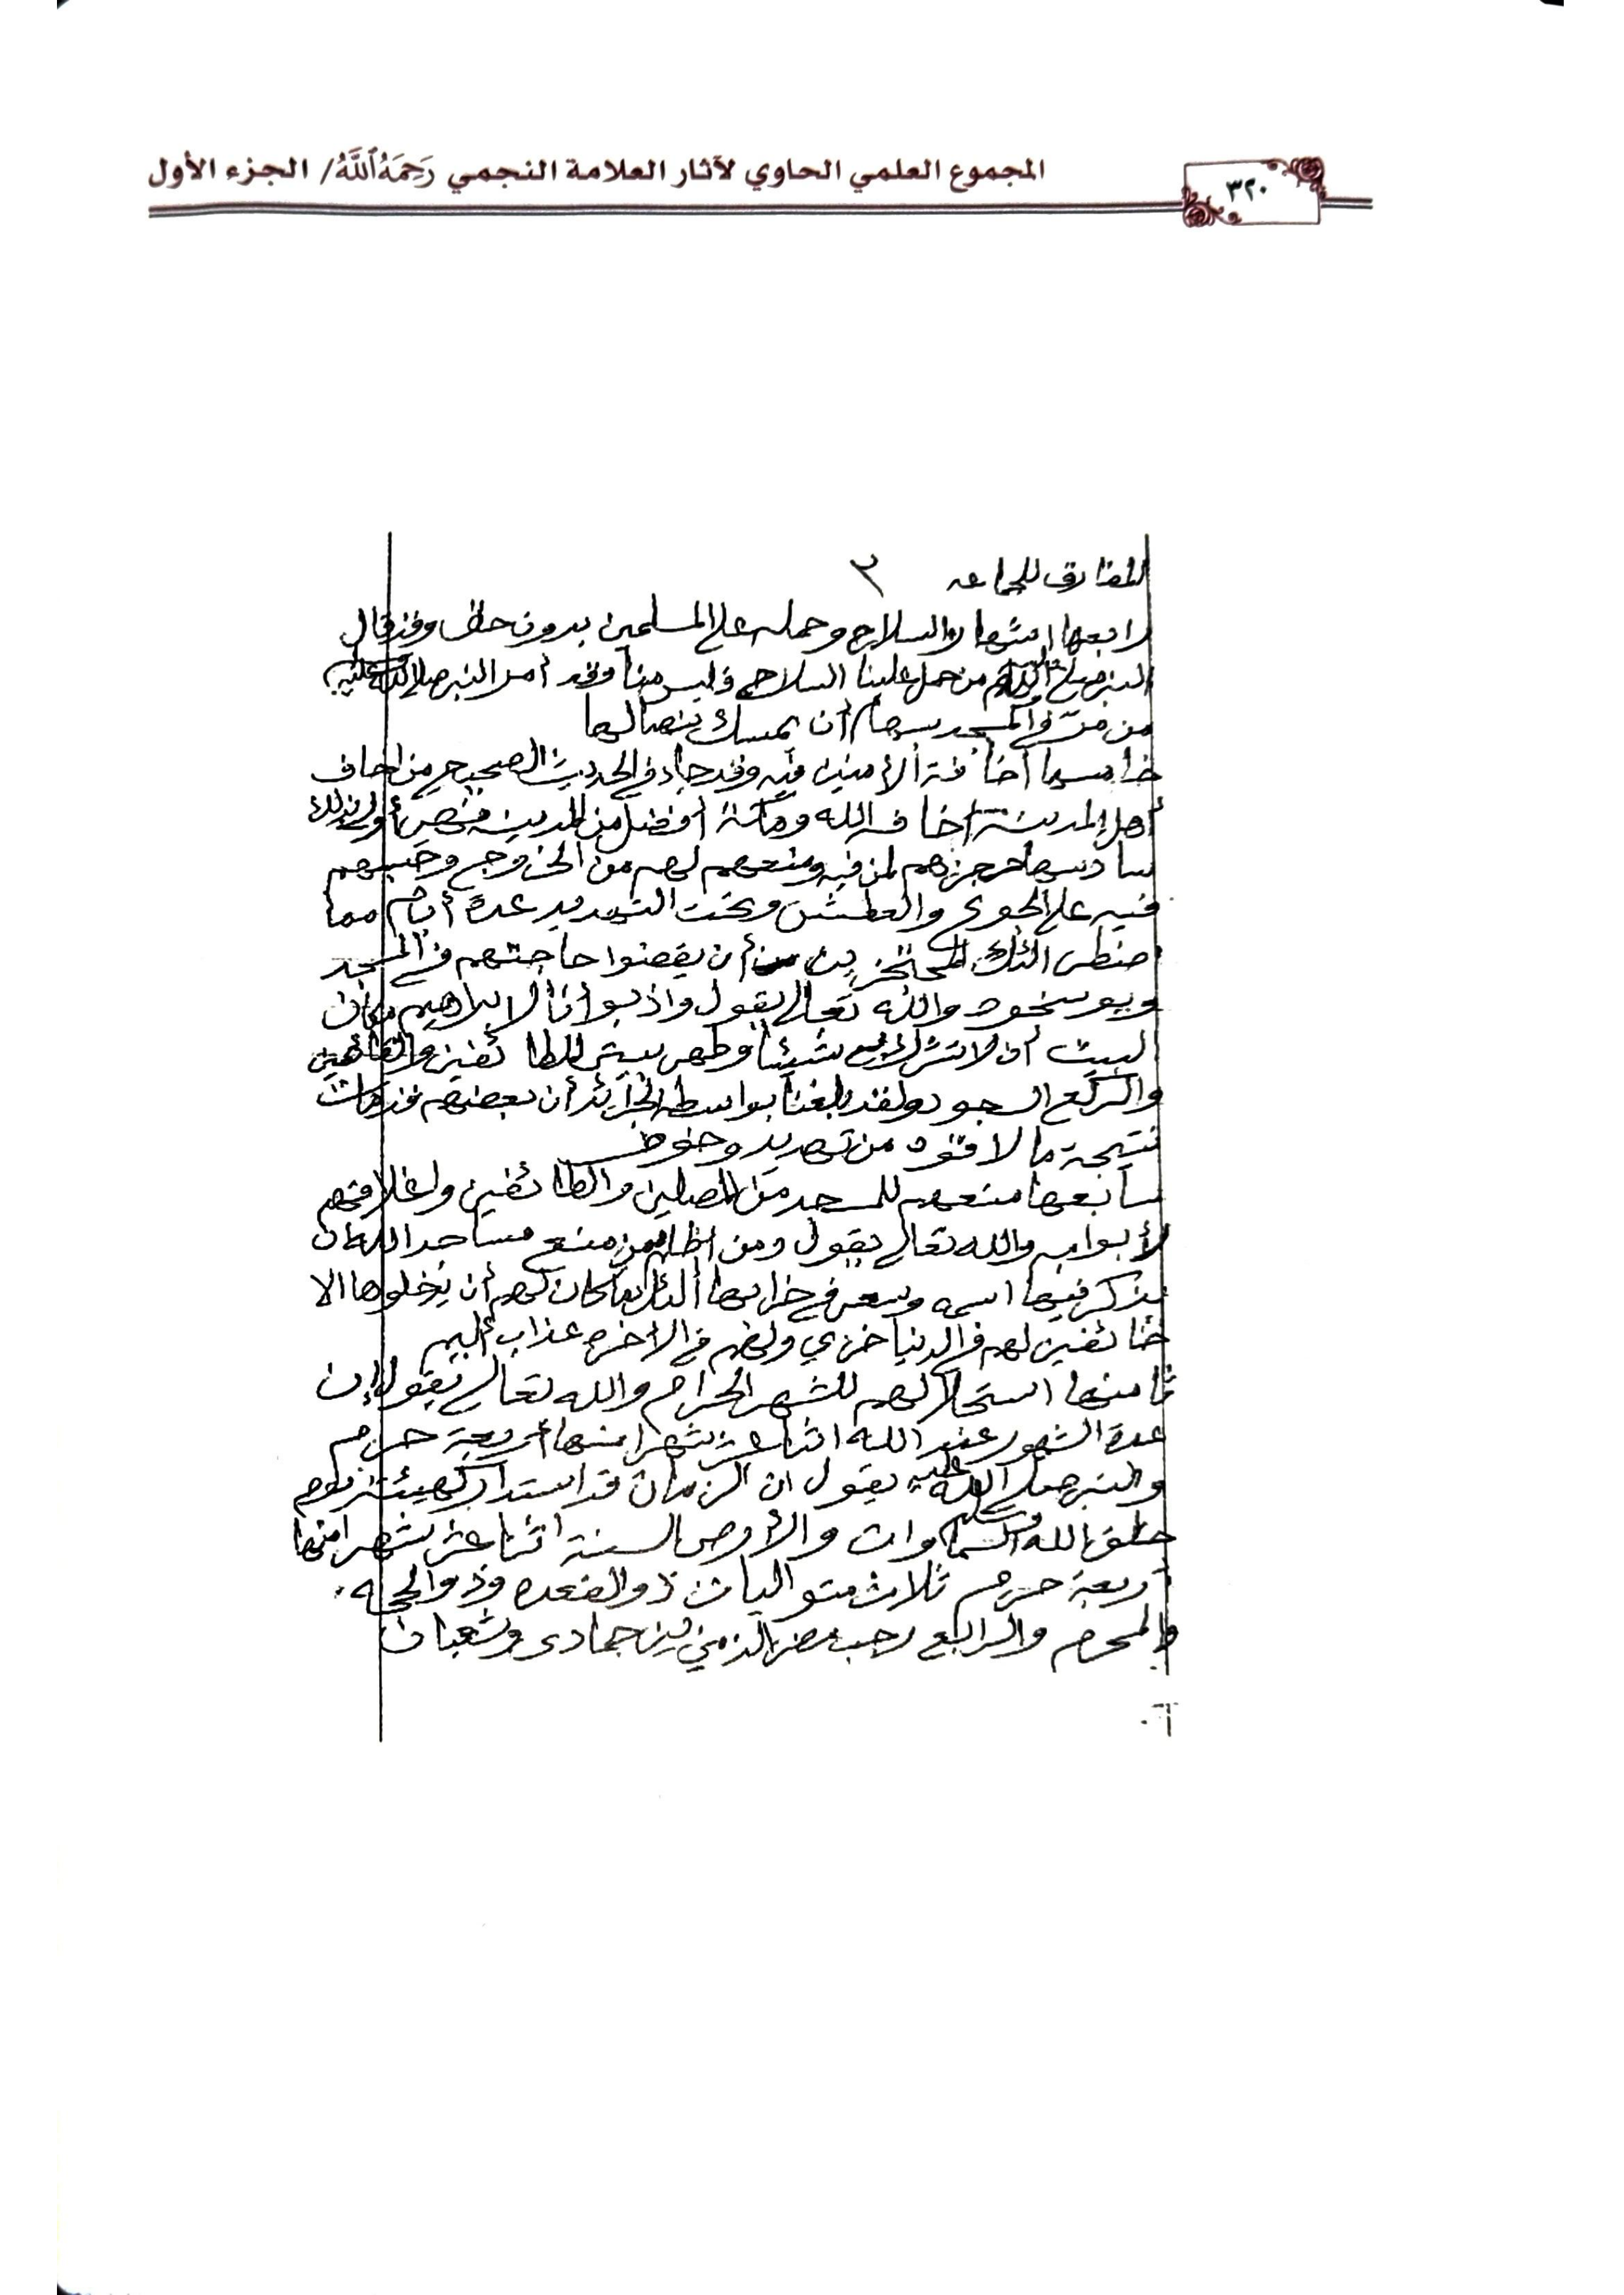 المجموع العلمي الحاوي لآثار العلامة النجمي رَحِمَهُ ٱللَّهُ / الجزء الأول
٣٢٠
المفارق للجماعه ٣
رابعها اشهار السلاح وحمله على المسلمين بدون حق وقد قال
النبي صلى الله عليه وسلم من حمل علينا السلاح فليس منا وقد أمر النبي صلى الله عليه
من مرّ في المسجد بسهام أن يمسك بنصالها
خامسها أخافة الأمنين فيه وقد جاء في الحديث الصحيح من اخاف
أهل المدينة أخافه الله ومكة أفضل من المدينه فهي أولى بذلك
سادسها حجزهم لمن فيه ومنعهم لهم من الخروج وحبسهم
فيه على الجوع والعطش وتحت التهديد عدة أيام مما
اضطر ألئك المحتجزين أن يقضوا حاجتهم في المسجد
ويوسخوه والله تعالى يقول واذ بوأنا لابراهيم مكان
البيت أن لا تشرك بي شيئا وطهر بيتي للطائفين والقائمين
والركع السجود ولقد بلغنا بواسطة الجرائد أن بعضهم قد مات
نتيجة ما لاقوه من تهديد وخوف
سابعها منعهم للمسجد من المصلين والطائفين واغلاقهم
لأبوابه والله تعالى يقول ومن اظلم ممن منع مساجد الله ان
يذكر فيها اسمه وسعى في خرابها ألئك ما كان لهم أن يدخلوها الا
خائفين لهم في الدنيا خزي ولهم في الأخره عذاب أليم
ثامنها استحلالهم للشهر الحرام والله تعالى يقول إن
عدة الشهور عند الله اثنا عشر شهرا منها أربعة حرم
والنبي صلى الله عليه وسلم يقول ان الزمان قد استدار كهيئته يوم
خلق الله السماوات والأرض السنة اثنا عشر شهرا منها
أربعة حرم ثلاث متواليات ذو القعده وذو الحجه
والمحرم والرابع رجب مضر الذي بين جمادى وشعبان